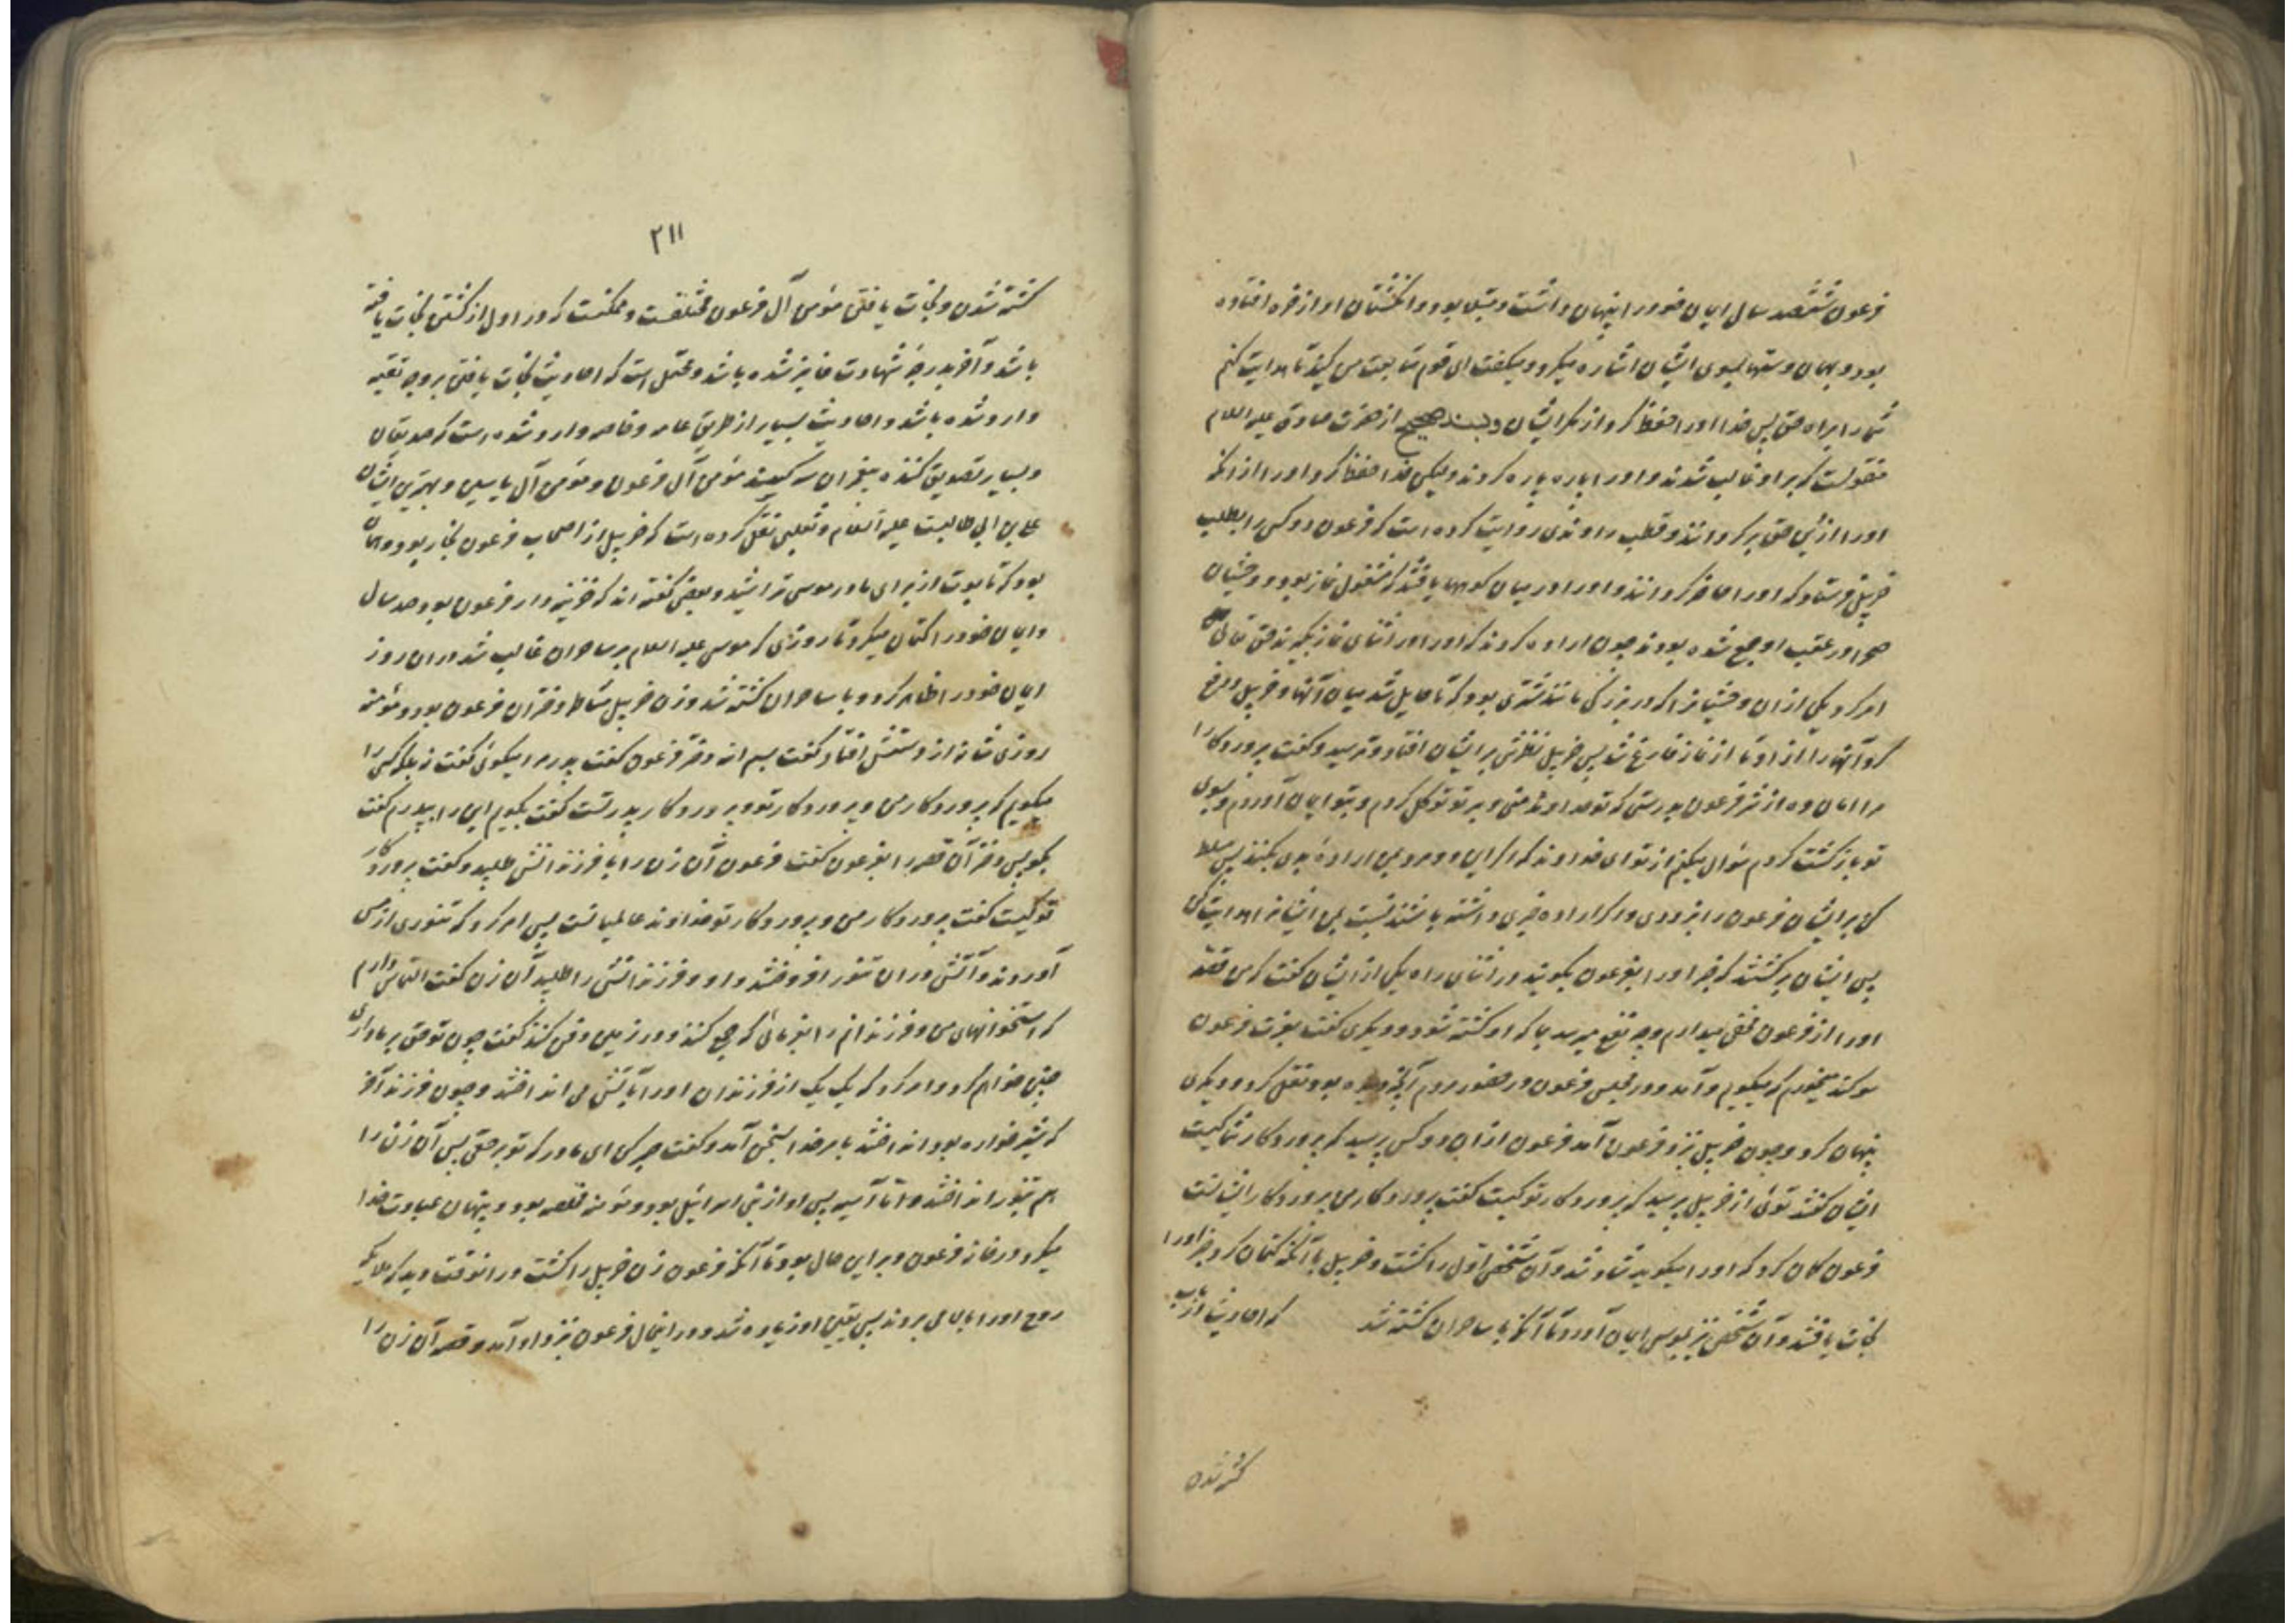 فرعون ششصد سال ایمان خود را پنهان داشت و مبتلا بود و انگشتان او از خوره افتاده
بود و بهمان دستها بسوی ایشان اشاره میکرد و میگفت ای قوم متابعت من کنید تا هدایت کنم
شما را براه حق پس خدا او را حفظ کرد از مکر ایشان و بسند صحیح از حضرت صادق علیه السلام
منقولست که بر او غالب شدند و او را پاره پاره کردند ولیکن خدا حفظ کرد او را از آنکه
او را از دین حق برگردانند و قطب راوندی روایت کرده است که فرعون دو کس را بطلب
خربیل فرستاد که او را حاضر گردانند و او را در میان کوهها یافتند که مشغول نماز بود و وحشیان
صحرا در عقب او جمع شده بودند چون اراده کردند که او را در اثنای نماز بگیرند حق تعالی
امر کرد یکی از آن وحشیانرا که در بزرگی مانند شتری بود که تا حایل شد میان آنها و خربیل و دفع
کرد آنها را از او تا از نماز فارغ شد پس خربیل نظرش بر ایشان افتاد و ترسید و گفت پروردگارا
مرا امان ده از شر فرعون بدرستی که تو خداوند منی و بر تو توکل کردم و بتو ایمان آوردم و بسوی
تو بازگشت کردم سؤال میکنم از تو ای خداوند که اگر این دو مرد بمن اراده بدی بکنند پس مسلط
کن بر ایشان فرعون را بزودی و اگر اراده خیری داشته باشند نسبت بمن ایشانرا هدایت کن
پس ایشان برگشتند که خبر او را بفرعون بگویند در اثنای راه یکی از ایشان گفت که من قصه
او را از فرعون مخفی میدارم و چه نفع میرسد بما که او کشته شود و دیگری گفت بعزت فرعون
سوگند میخورم که میگویم و آمد و در مجلس فرعون در حضور مردم آنچه دیده بود نقل کرد و دیگری
پنهان کرد و چون خربیل نزد فرعون آمد فرعون از آن دو کس پرسید که پروردگار شما کیست
ایشان گفتند توئی از خربیل پرسید که پروردگار تو کیست گفت پروردگار من پروردگار ایشانست
فرعون گمان کرد که او را میگوید شاد شد و آن شخص اول را کشت و خربیل با آنکه کتمان کرد خبر او را
نجات یافتند و آن شخص نیز بموسی ایمان آورد تا آنکه با ساحران کشته شد که احادیث در باب
کشته شدن
۲۱۱
کشته شدن و نجات یافتن مؤمن آل فرعون مختلفست و ممکنست که در اول از کشتن نجات یافته
باشد و آخر بدرجه شهادت فایز شده باشد و محتمل است که احادیث نجات یافتن بر وجه تقیه
وارد شده باشد و احادیث بسیار از طریق عامه و خاصه وارد شده است که صدیقان
و بسیار تصدیق کننده پیغمبران سه کسند مؤمن آل فرعون و مؤمن آل یاسین و بهترین ایشان
علی بن ابی طالبست علیه السلام و ثعلبی نقل کرده است که خربیل از اصحاب فرعون نجار بود و همان
بود که تابوت از برای مادر موسی تراشید و بعضی گفته اند که خزینه دار فرعون بود صد سال
و ایمان خود را کتمان میکرد تا روزی که موسی علیه السلام بر ساحران غالب شد در آن روز
ایمان خود را اظهار کرد و با ساحران کشته شد و زن خربیل مشاطه دختران فرعون بود و مؤمنه
روزی شانه از دستش افتاد گفت بسم الله دختر فرعون گفت پدر مرا میگوئی گفت نه بلکه کسی را
میگویم که پروردگار من و پروردگار تو و پروردگار پدر تست گفت بگویم این را بپدرم گفت
بگو پس دختر آن قصه را بفرعون گفت فرعون آن زن را با فرزندانش طلبید و گفت پروردگار
تو کیست گفت پروردگار من و پروردگار تو خداوند عالمیانست پس امر کرد که تنوری از مس
آوردند و آتش در آن تنور افروختند و او و فرزندانش را طلبید آن زن گفت التماس دارم
که استخوانهای من و فرزندانم را بفرمائی که جمع کنند و در زمین دفن کنند گفت چون تو حق بر ما داری
چنین خواهم کرد و امر کرد که یک یک از فرزندان او را بآتش می انداختند و چون فرزند آخر
که شیر خواره بود انداختند بامر خدا بسخن آمد و گفت صبر کن ای مادر که تو بر حقی پس آن زن را
هم بتنور انداختند و اما آسیه پس او از بنی اسرائیل بود و مؤمنه مخلصه بود و پنهان عبادت خدا
میکرد در خانه فرعون و بر این حال بود تا آنکه فرعون زن خربیل را کشت در آنوقت دید که ملایکه
روح او را ببالا می بردند پس یقین او زیاده شد و در اینحال فرعون نزد او آمد و قصه آن زن را